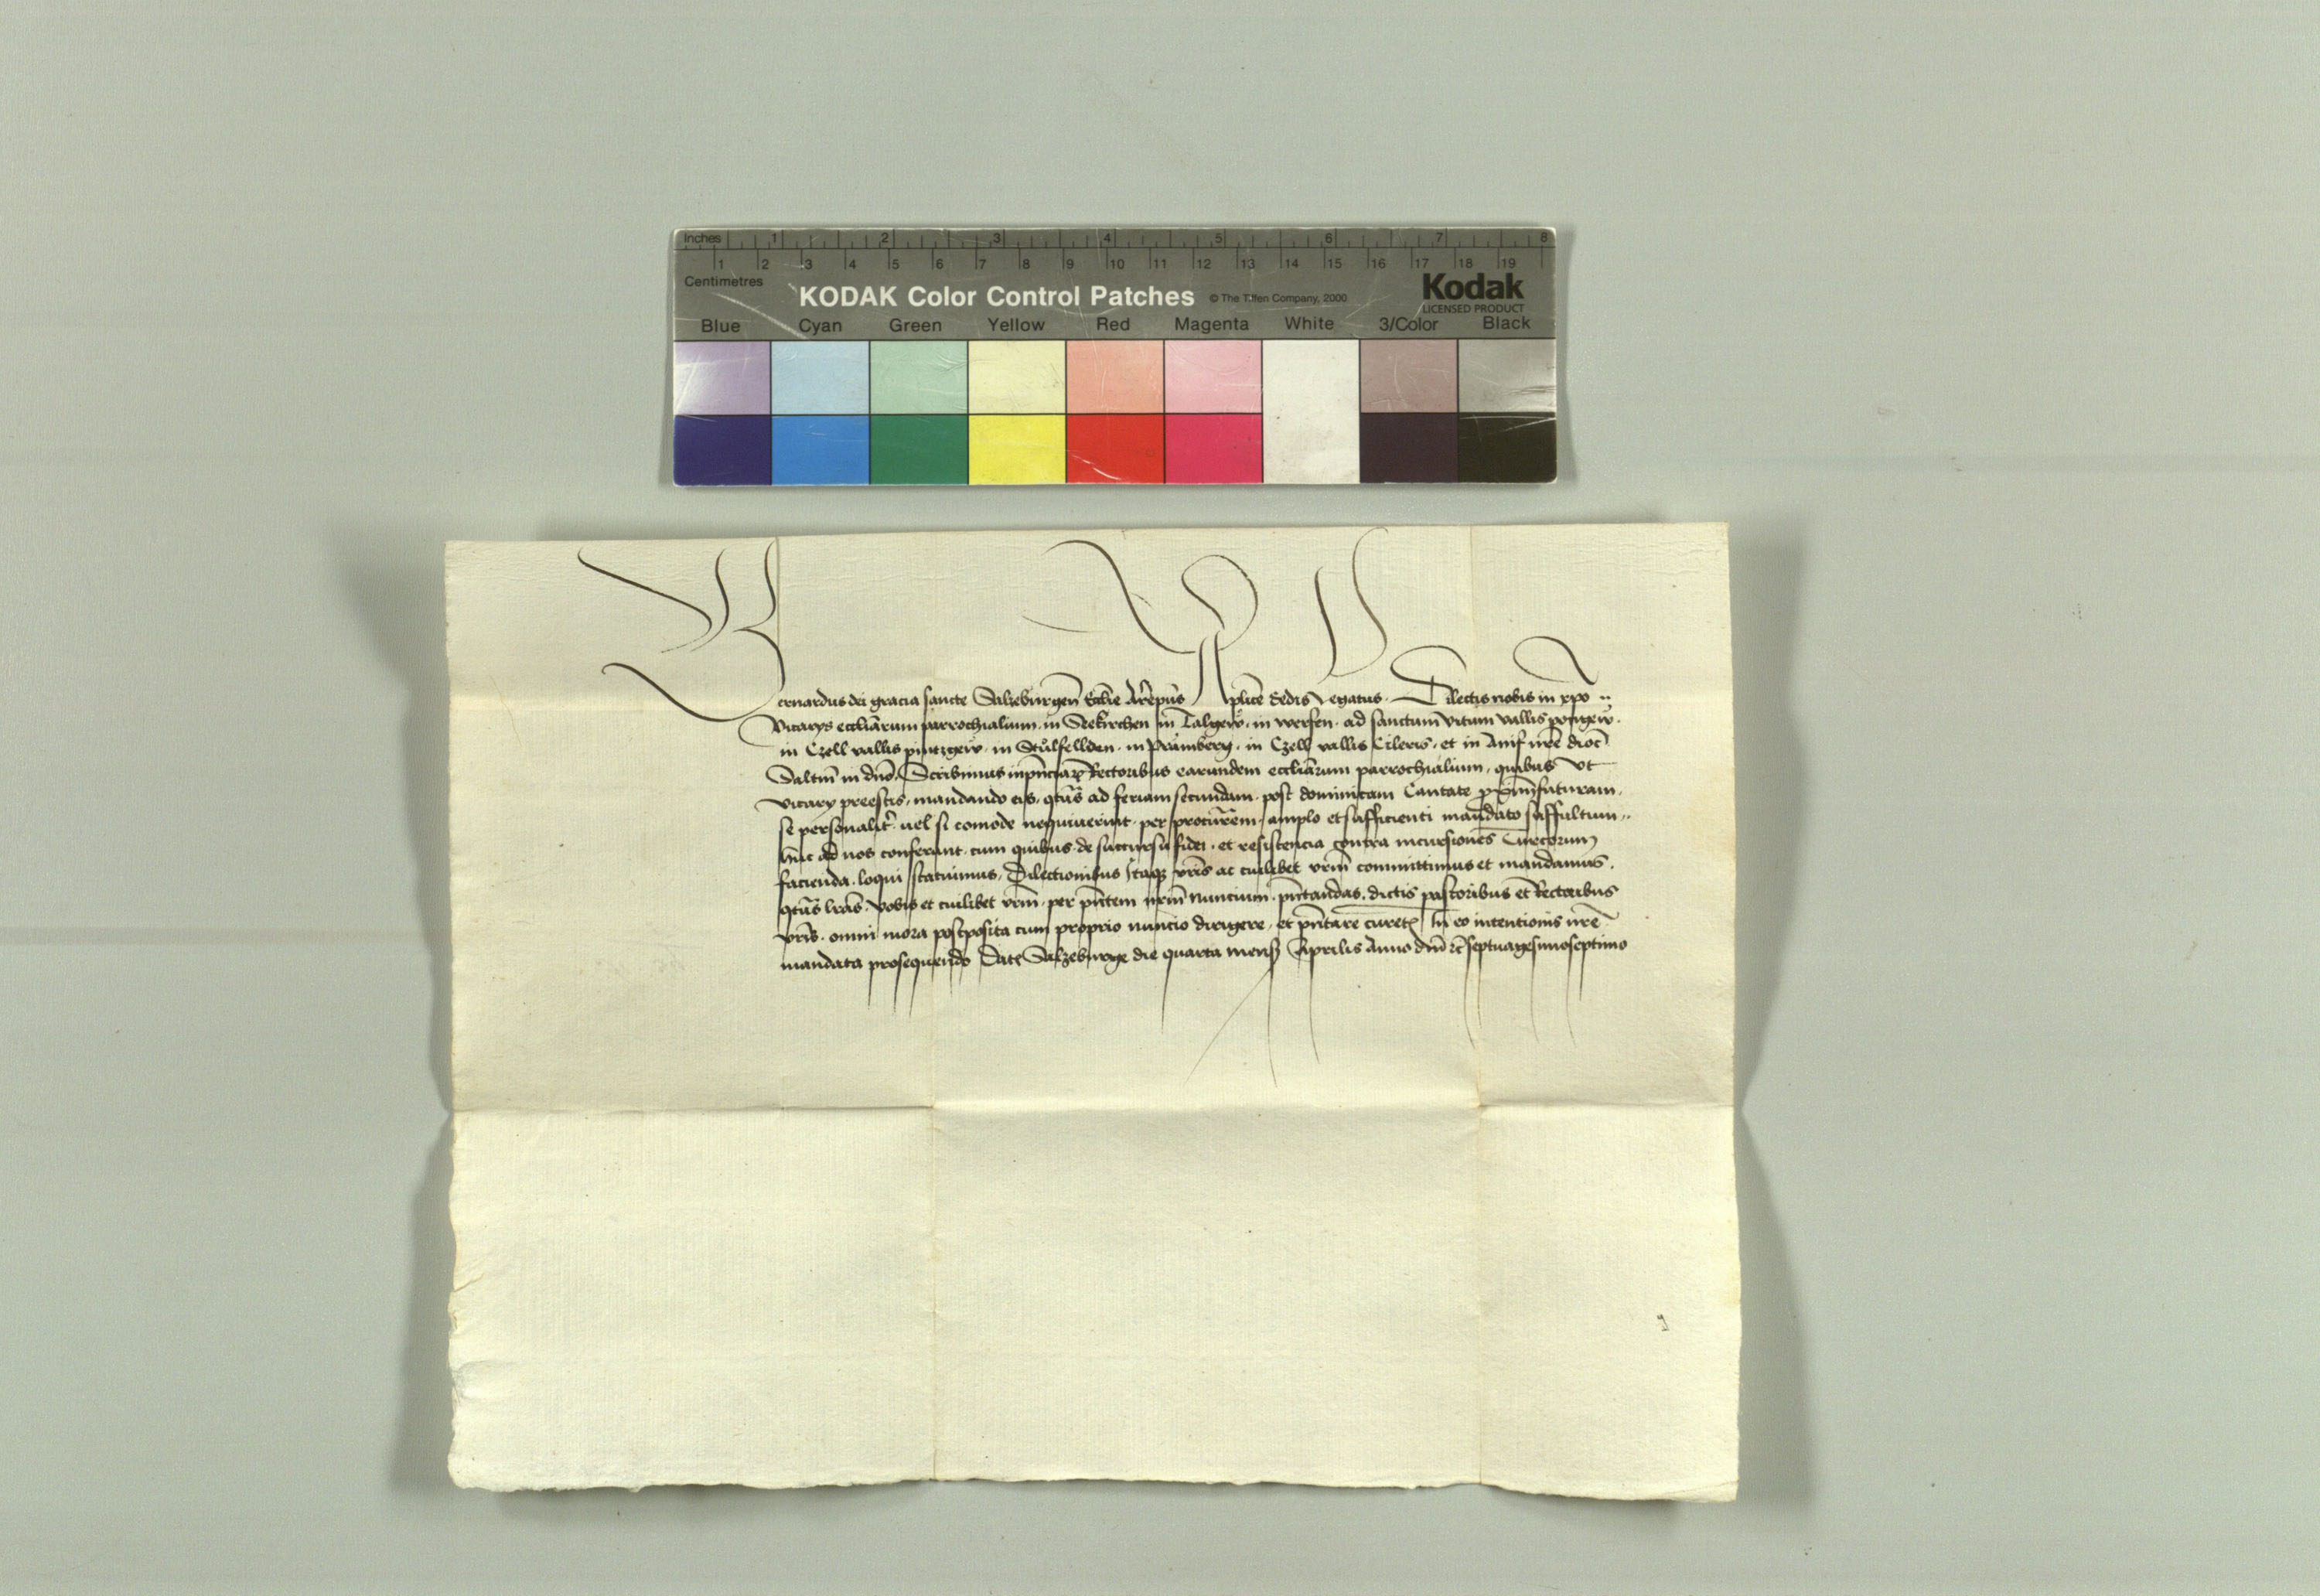 Inches 1 2 3 4 5 6 7 8
1 2 3 4 5 6 7 8 9 10 11 12 13 14 15 16 17 18 19
Centimetres
KODAK Color Control Patches © The Tiffen Company, 2000 Kodak
LICENSED PRODUCT
Blue Cyan Green Yellow Red Magenta White 3/Color Black
Bernardus dei gracia sancte Salzeburgen̄ Eccl̄ie Ar̄ep̄us Ap̄lice Sedis Legatus. Dilectis nobis in xp̄o ..
Vicarys eccl̄iarum parrochialium. in Seekirchen in Talgeẘ. in werfen. ad sanctum vitum vallis pongeẘ.
in Czell vallis pintzgeẘ. in Stůlfellden. in Pramberg. in Czell vallis Cileris. et in Anif nr̄e dioc̄
Salt̄m in dn̄o. Scribimus inpn̄ciar̄ Rectoribus earundem eccl̄iarum parrochialium. quibus vt
vicary preestis. mandando eis. qt̄us ad feriam secundam. post dominicam Cantate px̄īm futuram.
se personalit̄. uel si comode nequiuerint. per procūrem. amplo et sufficienti mandato suffultum..
hūc ad nos conferant. cum quibus. de succursu fidei. et resistencia contra incursiones Turcorum
facienda. loqui statuimus. Dilectionibus Itaq vr̄is ac cuilibet vr̄m committimus et mandamus.
qt̄us lr̄as. vobis et cuilibet vr̄m. per pn̄tem nr̄m Nuncium. pn̄tandas. dictis pastoribus et Rectoribus
vr̄is. omni mora postposita cum proprio nuncio dirigere. et pn̄tare curet. In eo intentionis nr̄e
mandata prosequendo Dat Salzeburge die quarta mens Aprilis Anno dn̄i rc̄ septuagesimoseptimo
9